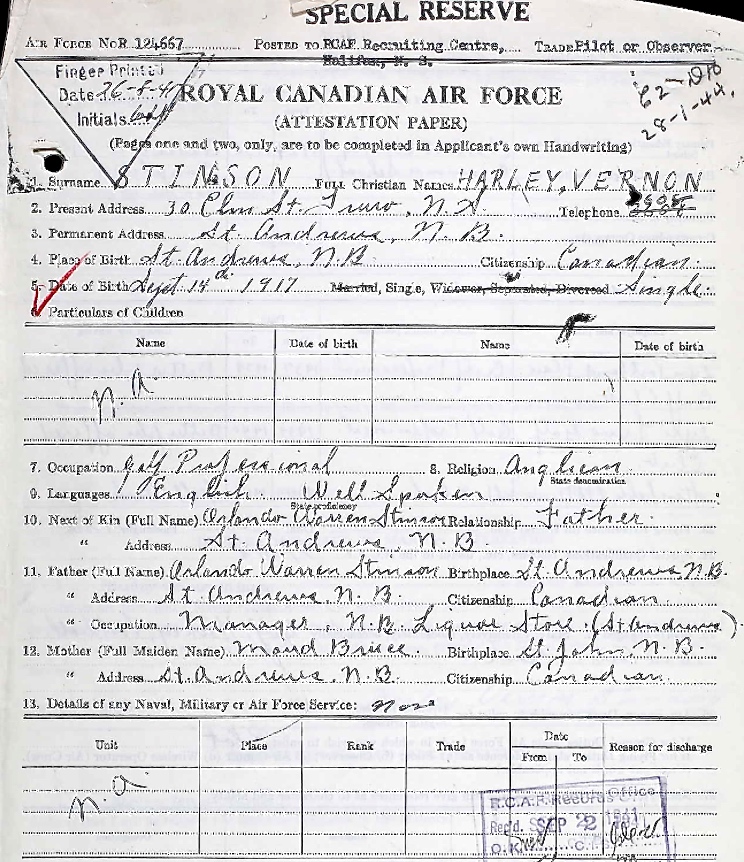 SPECIAL RESERVE
AIR FORCE NoR 124667 POSTED TO RCAF Recruiting Centre, TRADE Pilot or Observer
Halifax, N. S.
Finger Printed
Date 26-8-41
Initials
C2-
28-1-44.
ROYAL CANADIAN AIR FORCE
(ATTESTATION PAPER)
(Pages one and two, only, are to be completed in Applicant's own Handwriting)
1. Surname STINSON FULL Christian Names HARLEY, VERNON
2. Present Address 30 Elm St. Truro, N.S Telephone
3. Permanent Address St. Andrews, N.B.
4. Place of Birth St. Andrews, N.B. Citizenship Canadian.
5. Date of Birth Sept 14th 1917 Married, Single, Widower, Separated, Divorced Single.
6. Particulars of Children
Name Date of birth Name Date of birth
n.a.
7. Occupation Golf Professional 8. Religion Anglican.
State denomination
9. Languages English. Well Spoken
State proficiency
10. Next of Kin (Full Name) Orlando Warren Stinson Relationship Father.
" Address St. Andrews, N.B.
11. Father (Full Name) Orlando Warren Stinson Birthplace St. Andrews N.B.
" Address St. Andrews, N.B. Citizenship Canadian.
" Occupation Manager, N.B. Liquor Store. (St Andrews).
12. Mother (Full Maiden Name) Maud Bruce. Birthplace St. John, N.B.
" Address St. Andrews, N.B. Citizenship Canadian.
13. Details of any Naval, Military or Air Force Service: None
Unit Place Rank Trade Date Reason for discharge
From To
n.a.
R.C.A.F. Records Office
Rec'd. SEP 22 1941
O.K.